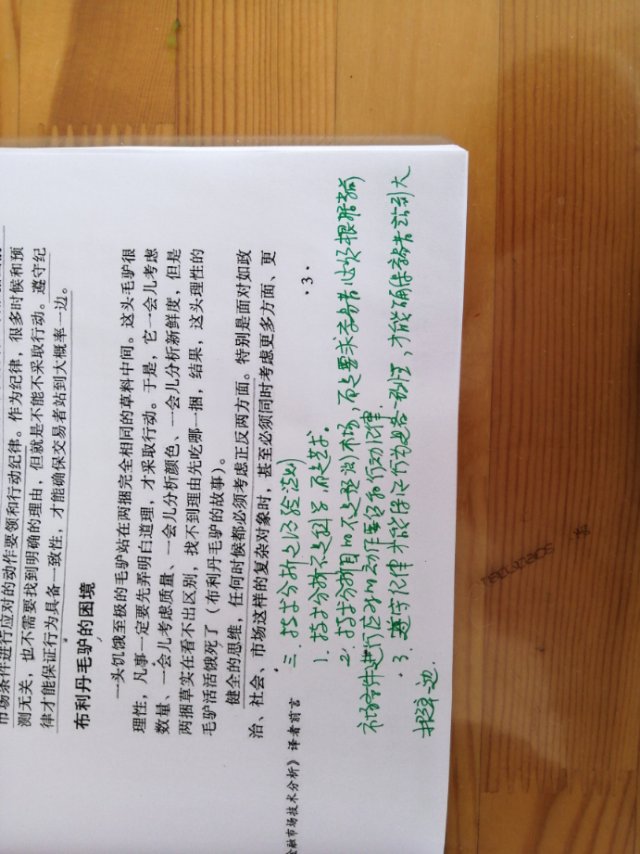 市场条件进行应对的动作要领和行动纪律。作为纪律，很多时候和预
测无关，也不需要找到明确的理由，但就是不能不采取行动。遵守纪
律才能保证行为具备一致性，才能确保交易者站到大概率一边。
布利丹毛驴的困境
一头饥饿至极的毛驴站在两捆完全相同的草料中间。这头毛驴很
理性，凡事一定要先弄明白道理，才采取行动。于是，它一会儿考虑
数量、一会儿考虑质量、一会儿分析颜色、一会儿分析新鲜度，但是
两捆草实在看不出区别，找不到理由先吃哪一捆，结果，这头理性的
毛驴活活饿死了（布利丹毛驴的故事）。
健全的思维，任何时候都必须考虑正反两方面。特别是面对如政
治、社会、市场这样的复杂对象时，甚至必须同时考虑更多方面、更
·3·
金融市场技术分析》译者前言
三、技术分析是经验法则
1. 技术分析不是科学，而是艺术。
2. 技术分析目的不是预测市场，而是要求交易者必须根据
市场条件进行应对的动作要领和行动纪律.
3. 遵守纪律才能保证行为具备一致性，才能确保交易者站到大
概率一边.